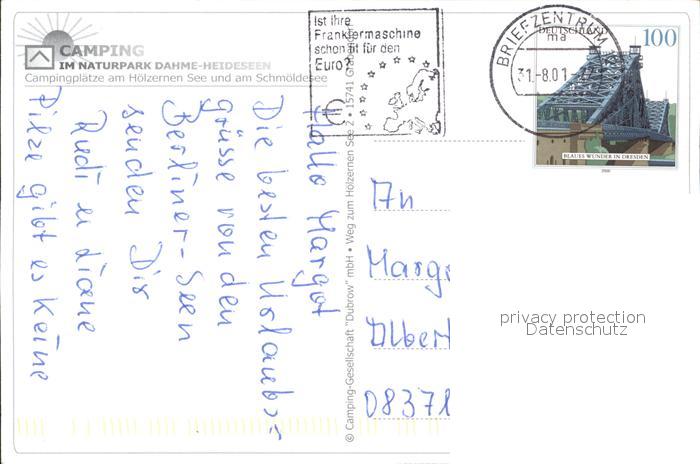 CAMPING
IM NATURPARK DAHME-HEIDESEEN
Campingplätze am Hölzernen See und am Schmöldesee
Ist Ihre
Frankiermaschine
schon fit für den
Euro?
BRIEFZENTRUM
ma
31.-8.01.-
DEUTSCHLAND
100
BLAUES WUNDER IN DRESDEN
2000
Hallo Margot
Die besten Urlaubs=
grüsse von den
Berliner-Seen
senden Dir
Rudi u Diane
Pilze gibt es keine
© Camping-Gesellschaft "Dubrow" mbH • Weg zum Hölzernen See 2 • 15741
An
Marg
Albert
08371
privacy protection
Datenschutz